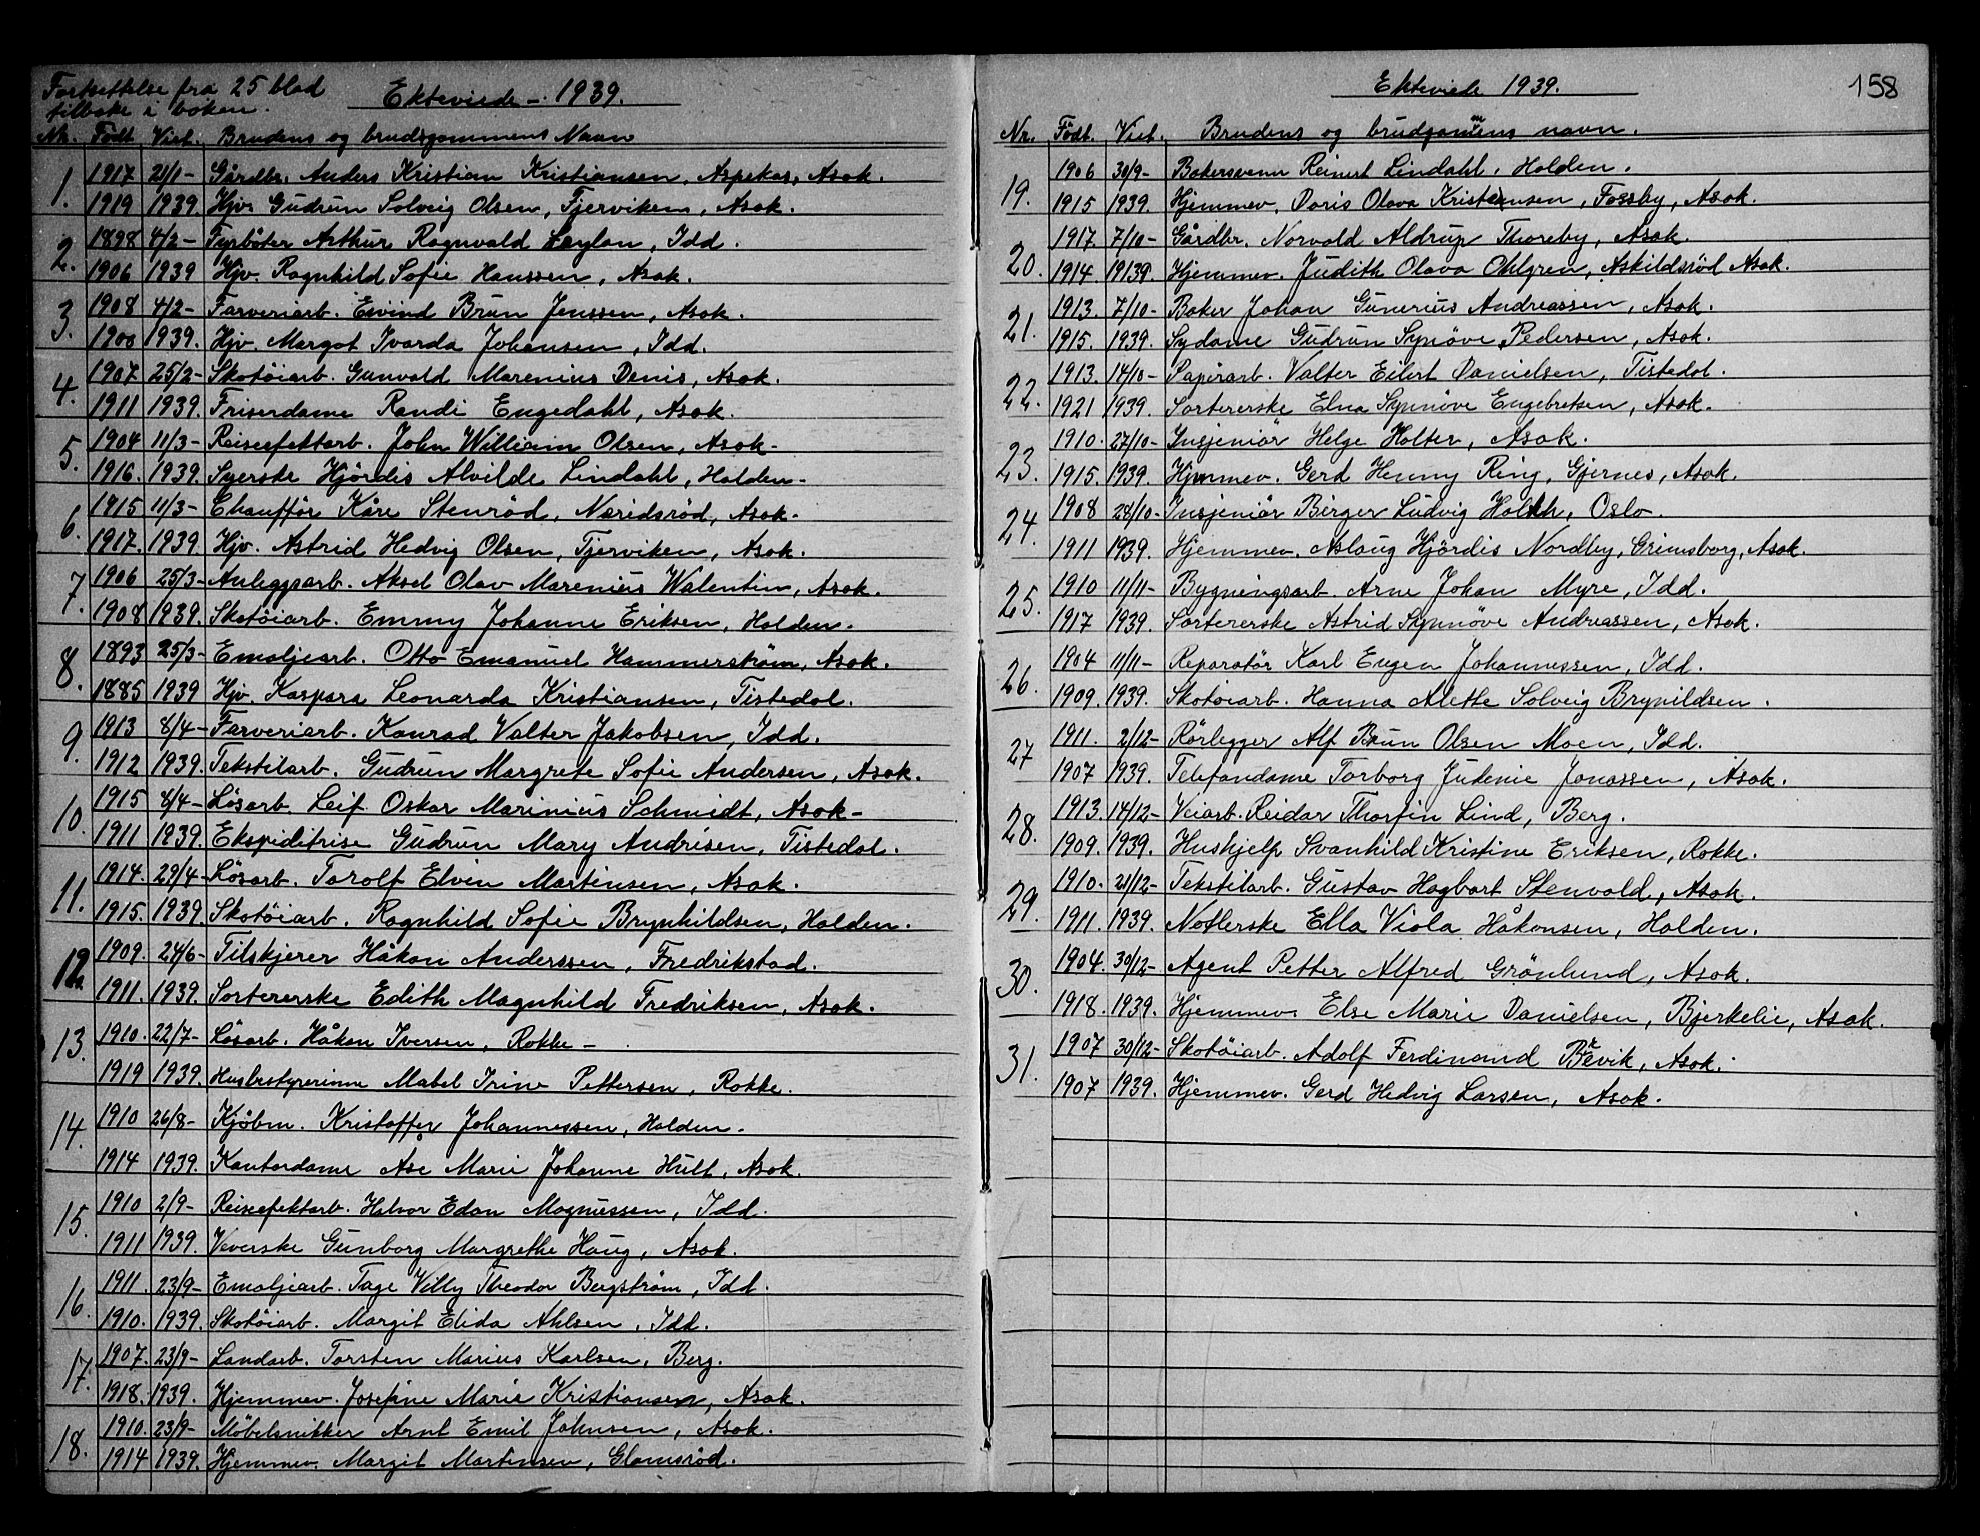 Fortsettelse fra 25 blad
tilbake i boken.
Ektevirde - 1939.
Nr. Født Viet. Brudens og brudgommens Navn
1. 1917 21/1- Gårdbr. Anders Kristian Kristiansen, Aspekas, Asak.
1919 1939. Hjv. Gudrun Solveig Olsen, Tjerviken, Asak.
2. 1898 4/2- Fyrbøter Arthur Ragnvald Leylon, Idd.
1906 1939 Hjv. Ragnhild Sofie Hanssen, Asak.
3. 1908 4/2- Farveriarb. Eivind Brun Jenssen, Asak.
1900 1939. Hjv. Margot Ivarda Johansen, Idd.
4. 1907 25/2- Skotöiarb. Gunvald Marenius Denis, Asak.
1911 1939. Friserdame Randi Engedahl, Asak.
5. 1904 11/3- Reiseefektarb. John William Olsen, Asak-
1916. 1939. Syerske Hjördis Alvilde Lindahl, Halden-
6. 1915 11/3- Chaufför Kåre Stenröd, Næridsröd, Asak-
1917. 1939. Hjv. Astrid Hedvig Olsen, Tjerviken, Asak.
7. 1906 25/3- Anleggsarb. Aksel Olav Marenius Walentin, Asak.
1908 1939. Skotöiarb. Emmy Johanne Eriksen, Halden-
8. 1893 25/3- Emaljearb. Otto Emanuel Hammerström, Asak.
1885 1939 Hjv. Kaspara Leonarda Kristiansen, Tistedal.
9. 1913 8/4- Farveriarb. Konrad Valter Jakobsen, Idd.
1912 1939. Tekstilarb. Gudrun Margrete Sofie Andersen, Asak.
10. 1915 8/4- Lösarb. Leif Oskar Marinius Schmidt, Asak-
1911 1939. Ekspeditrise Gudrun Mary Andrésen, Tistedal.
11. 1914. 29/4- Lösarb. Torolf Elvin Martinsen, Asak.
1915. 1939. Skotöiarb. Ragnhild Sofie Brynhildsen, Halden.
12. 1909. 24/6- Tilskjerer Håkon Anderssen, Fredrikstad.
1911. 1939. Sortererske Edith Magnhild Fredriksen, Asak.
13. 1910. 22/7- Lösarb. Håkon Iversen, Rokke-
1919 1939. Husbestyrerinne Mabel Irine Pettersen, Rokke.
14. 1910 26/8- Kjöbm. Kristoffer Johannessen, Halden-
1914 1939. Kontordame Åse Marie Johanne Hult, Asak.
15. 1910 2/9- Reiseefektarb. Halvor Edon Magnussen, Idd.
1911 1939. Veverske Gunborg Margrethe Haug, Asak.
16. 1911. 23/9- Emaljearb. Tage Villy Theodor Bergström, Idd.
1910. 1939. Skotöiarb. Margit Elida Ahlsen, Idd.
17. 1907. 23/9- Landarb. Torsten Marius Karlsen, Berg.
1918. 1939. Hjemmev. Josefine Marie Kristiansen, Asak.
18. 1910. 23/9- Möbelsnikker Arnt Emil Johnsen, Asak.
1914 1939. Hjemmev. Margit Martinsen, Glamsröd.
Ektevirde 1939.
158
Nr. Født. Viet. Brudens og brudgommens navn.
19. 1906 30/9- Bakersvenn Reinert Lindahl, Halden.
1915 1939. Hjemmev. Doris Olava Kristensen, Fossby, Asak.
20. 1917. 7/10- Gårdbr. Norvald Aldrup Thoreby, Asak.
1914. 1939. Hjemmev. Judith Olava Ohlgren, Askildsröd Asak.
21. 1913. 7/10- Baker Johan Gunerius Andreassen, Asak.
1915. 1939. Sydame Gudrun Synöve Pedersen, Asak.
22. 1913. 14/10- Papirarb. Valter Eilert Danielsen, Tistedal.
1921 1939. Sortererske Elna Synnöve Engebretsen, Asak.
23. 1910. 27/10- Insjeniör Helge Holter, Asak.
1915. 1939. Hjmmev. Gerd Henny Ring, Gjernes, Asak.
24. 1908 28/10- Insjeniör Birger Ludvig Holth, Oslo.
1911 1939. Hjemmev. Aslaug Hjördis Nordby, Grimsborg, Asak.
25. 1910 11/11- Bygningsarb. Arne Johan Myre, Idd.
1917 1939. Sortererske Astrid Synnöve Andreassen, Asak.
26. 1904 11/11- Reparatör Karl Eugen Johannessen, Idd.
1909. 1939. Skotöiarb. Hanna Alette Solveig Brynildsen.
27 1911. 2/12- Rörlegger Alf Brun Olsen Moen, Idd.
1907 1939. Telefondame Torborg Judenie Jonassen, Asak.
28. 1913. 14/12- Veiarb. Reidar Thorfin Lind, Berg.
1909. 1939. Hushjelp Svanhild Kristine Eriksen, Rokke.
29. 1910. 21/12- Tekstilarb. Gustav Hagbart Stenvald, Asak.
1911. 1939. Notlerske Ella Viola Håkonsen, Halden.
30. 1904. 30/12- Agent Petter Alfred Grönlund, Asak.
1918. 1939. Hjemmev. Else Marie Danielsen, Bjerkelie, Asak.
31. 1907 30/12- Skotöiarb. Adolf Ferdinand Bævik, Asak.
1907 1939. Hjemmev. Gerd Hedvig Larsen, Asak.